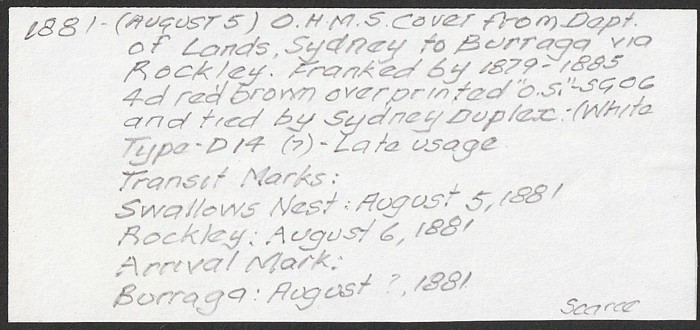 1881-(AUGUST 5) O.H.M.S. Cover from Dept.
of Lands, Sydney to Burraga via
Rockley. Franked by 1879-1885
4d red brown overprinted "O.S."-SG O6
and tied by Sydney Duplex:(White
Type-D14 (7)-Late usage
Transit Marks:
Swallows Nest: August 5, 1881
Rockley: August 6, 1881
Arrival Mark:
Burraga: August ?, 1881
Scarce